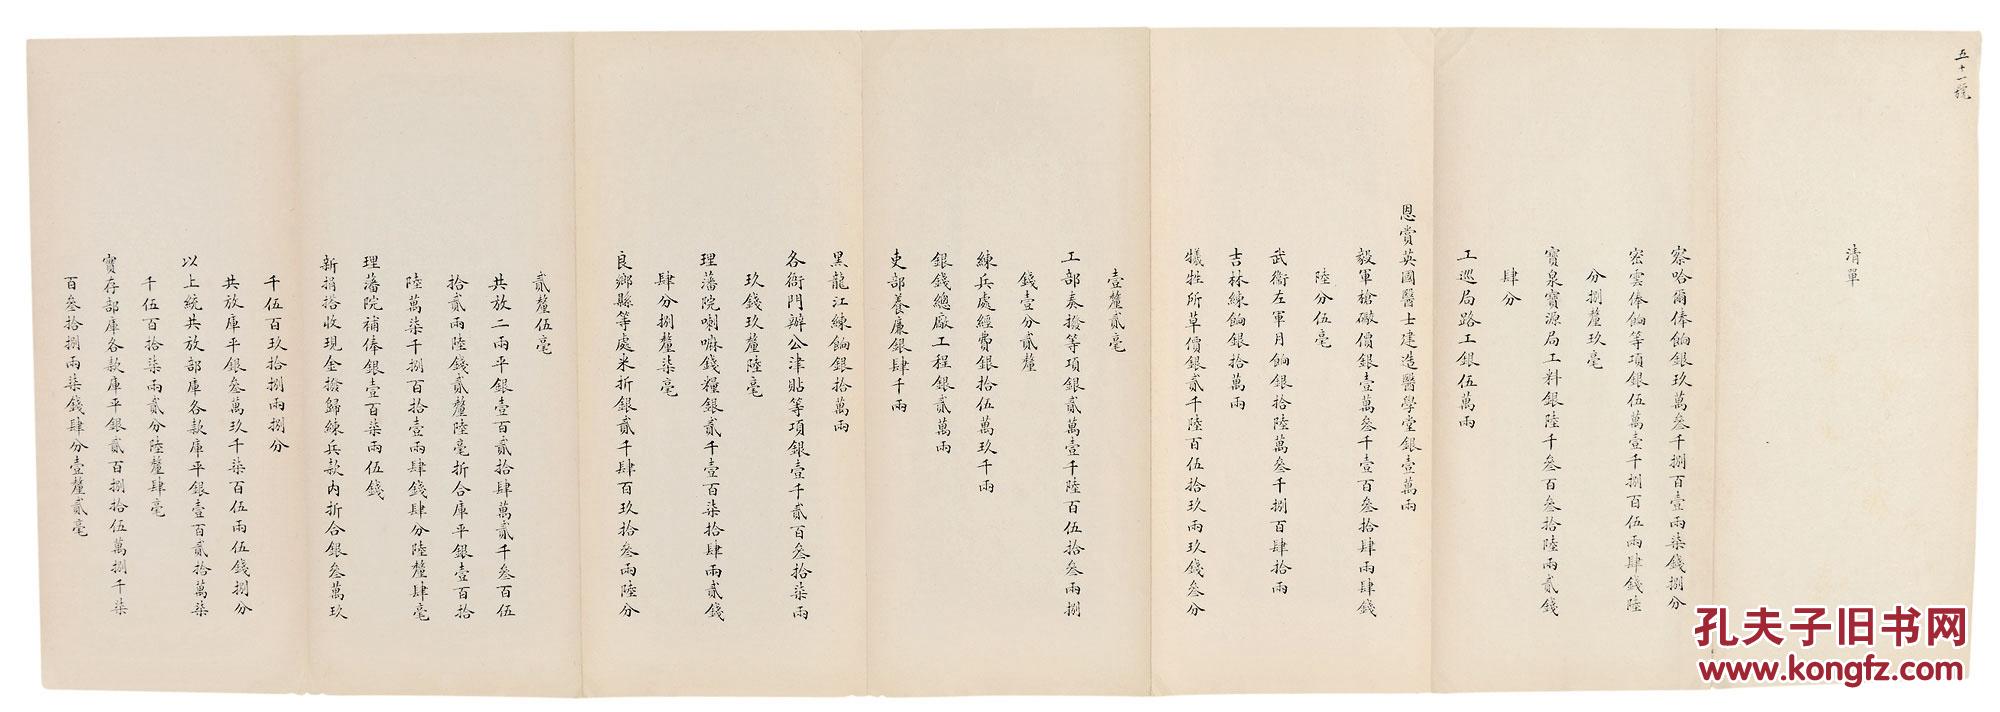 五十一號
清單
察哈爾俸餉銀玖萬叁千捌百壹兩柒錢捌分
密雲俸餉等項銀伍萬壹千捌百伍兩肆錢陸
分捌釐玖毫
寶泉寶源局工料銀陸千叁百叁拾陸兩貳錢
肆分
工巡局路工銀伍萬兩
恩賞英國醫士建造醫學堂銀壹萬兩
毅軍槍礮價銀壹萬叁千壹百叁拾肆兩肆錢
陸分伍毫
武衛左軍月餉銀拾陸萬叁千捌百肆拾兩
吉林練餉銀拾萬兩
犧牲所草價銀貳千陸百伍拾玖兩玖錢叁分
壹釐貳毫
工部奏撥等項銀貳萬壹千陸百伍拾叁兩捌
錢壹分貳釐
練兵處經費銀拾伍萬玖千兩
銀錢總廠工程銀貳萬兩
吏部養廉銀肆千兩
黑龍江練餉銀拾萬兩
各衙門辦公津貼等項銀壹千貳百叁拾柒兩
玖錢玖釐陸毫
理藩院喇嘛錢糧銀貳千壹百柒拾肆兩貳錢
肆分捌釐柒毫
良鄉縣等處米折銀貳千肆百玖拾叁兩陸分
貳釐伍毫
共放二兩平銀壹百貳拾肆萬貳千叁百伍
拾貳兩陸錢貳釐陸毫折合庫平銀壹百拾
陸萬柒千捌百拾壹兩肆錢肆分陸釐肆毫
理藩院補俸銀壹百柒兩伍錢
新捐搭收現金撥歸練兵款內折合銀叁萬玖
千伍百玖拾捌兩捌分
共放庫平銀叁萬玖千柒百伍兩伍錢捌分
以上統共放部庫各款庫平銀壹百貳拾萬柒
千伍百拾柒兩貳分陸釐肆毫
實存部庫各款庫平銀貳百捌拾伍萬捌千柒
百叁拾捌兩柒錢肆分壹釐貳毫
孔夫子旧书网
www.kongfz.com